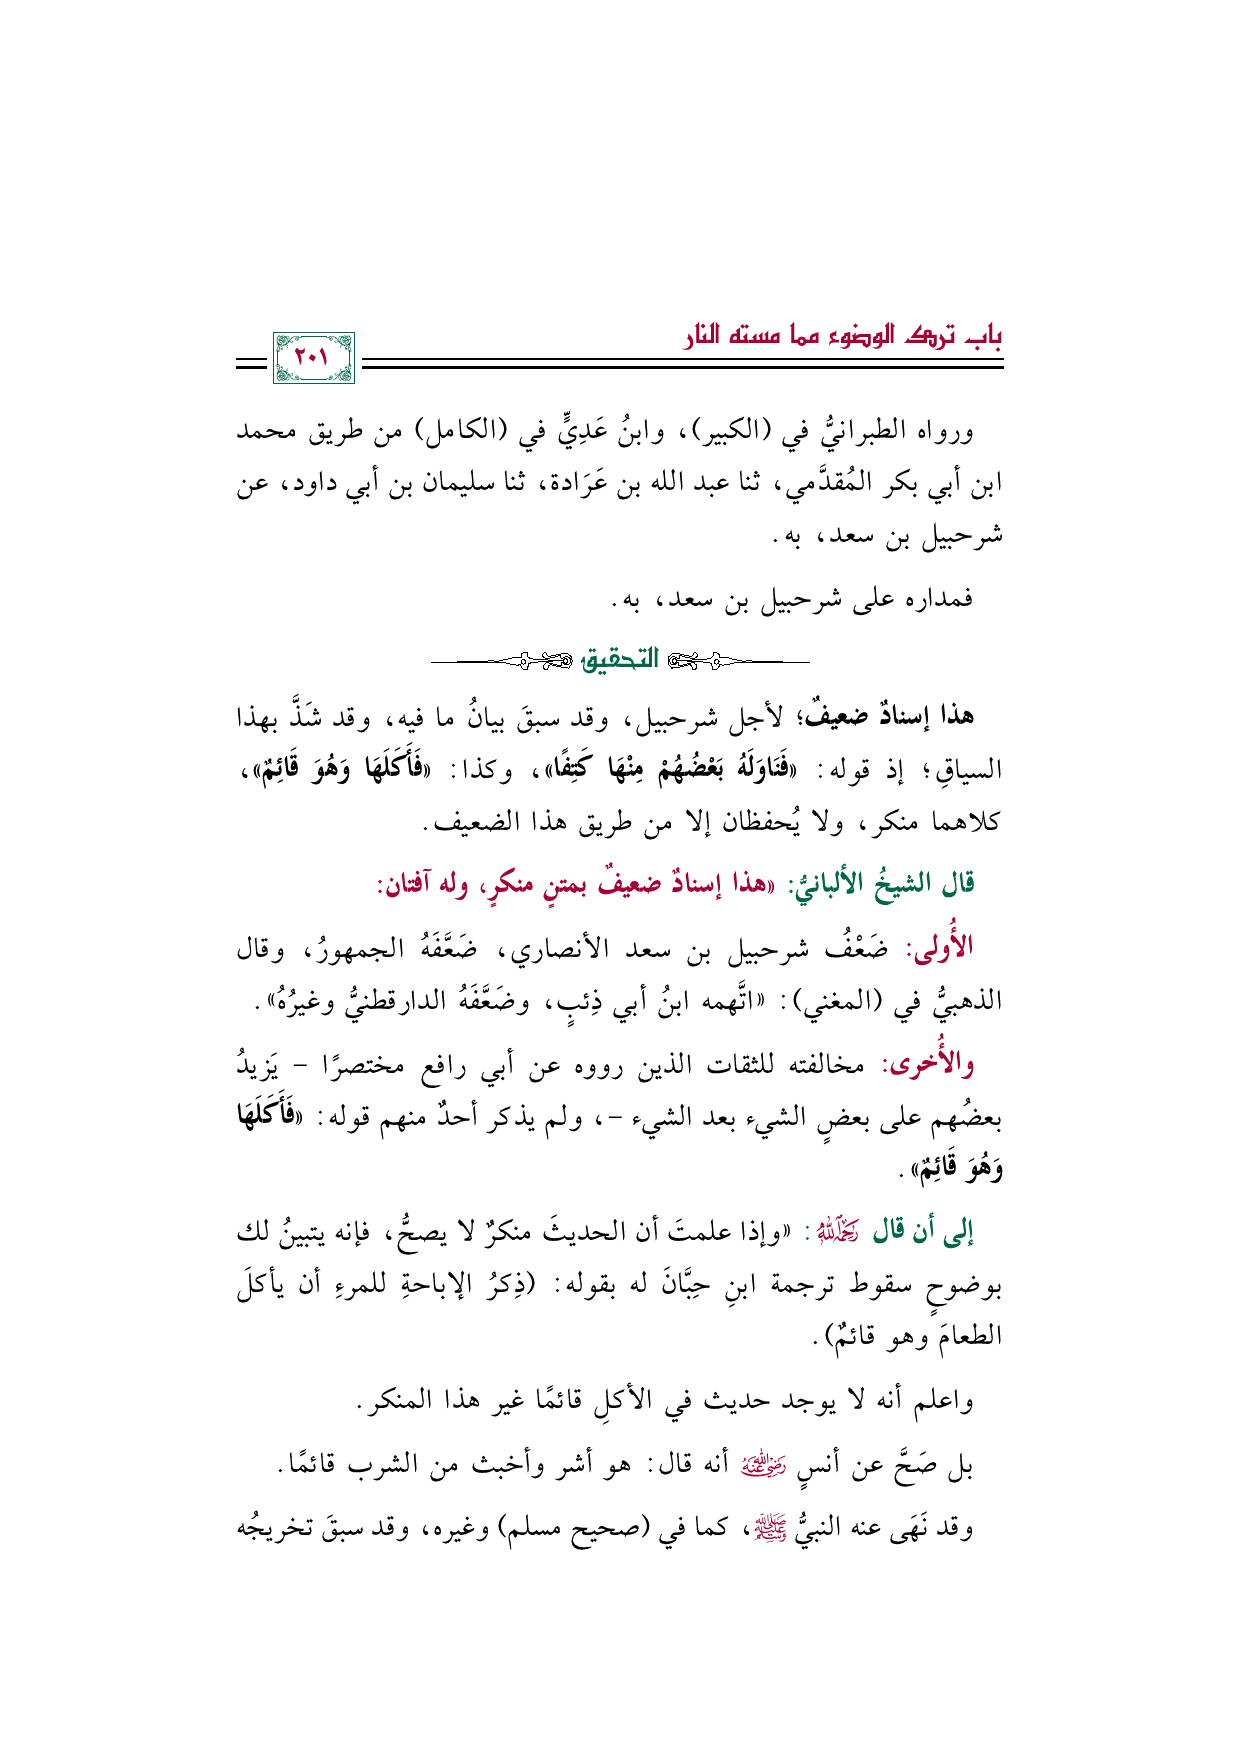 باب ترك الوضوء مما مسته النار
٢٠١
ورواه الطبرانيُّ في (الكبير)، وابنُ عَدِيٍّ في (الكامل) من طريق محمد
ابن أبي بكر المُقدَّمي، ثنا عبد الله بن عَرَادة، ثنا سليمان بن أبي داود، عن
شرحبيل بن سعد، به.
فمداره على شرحبيل بن سعد، به.
التحقيق
هذا إسنادٌ ضعيفٌ؛ لأجل شرحبيل، وقد سبقَ بيانُ ما فيه، وقد شَذَّ بهذا
السياقِ؛ إذ قوله: «فَنَاوَلَهُ بَعْضُهُمْ مِنْهَا كَتِفًا»، وكذا: «فَأَكَلَهَا وَهُوَ قَائِمٌ»،
كلاهما منكر، ولا يُحفظان إلا من طريق هذا الضعيف.
قال الشيخُ الألبانيُّ: «هذا إسنادٌ ضعيفٌ بمتنٍ منكرٍ، وله آفتان:
الأُولى: ضَعْفُ شرحبيل بن سعد الأنصاري، ضَعَّفَهُ الجمهورُ، وقال
الذهبيُّ في (المغني): «اتَّهمه ابنُ أبي ذِئبٍ، وضَعَّفَهُ الدارقطنيُّ وغيرُهُ».
والأُخرى: مخالفته للثقات الذين رووه عن أبي رافع مختصرًا - يَزيدُ
بعضُهم على بعضٍ الشيء بعد الشيء -، ولم يذكر أحدٌ منهم قوله: «فَأَكَلَهَا
وَهُوَ قَائِمٌ».
إلى أن قال رَحِمَهُ اللهُ: «وإذا علمتَ أن الحديثَ منكرٌ لا يصحُّ، فإنه يتبينُ لك
بوضوحٍ سقوط ترجمة ابنِ حِبَّانَ له بقوله: (ذِكرُ الإباحةِ للمرءِ أن يأكلَ
الطعامَ وهو قائمٌ).
واعلم أنه لا يوجد حديث في الأكلِ قائمًا غير هذا المنكر.
بل صَحَّ عن أنسٍ رضي الله عنه أنه قال: هو أشر وأخبث من الشرب قائمًا.
وقد نَهَى عنه النبيُّ ﷺ، كما في (صحيح مسلم) وغيره، وقد سبقَ تخريجُه